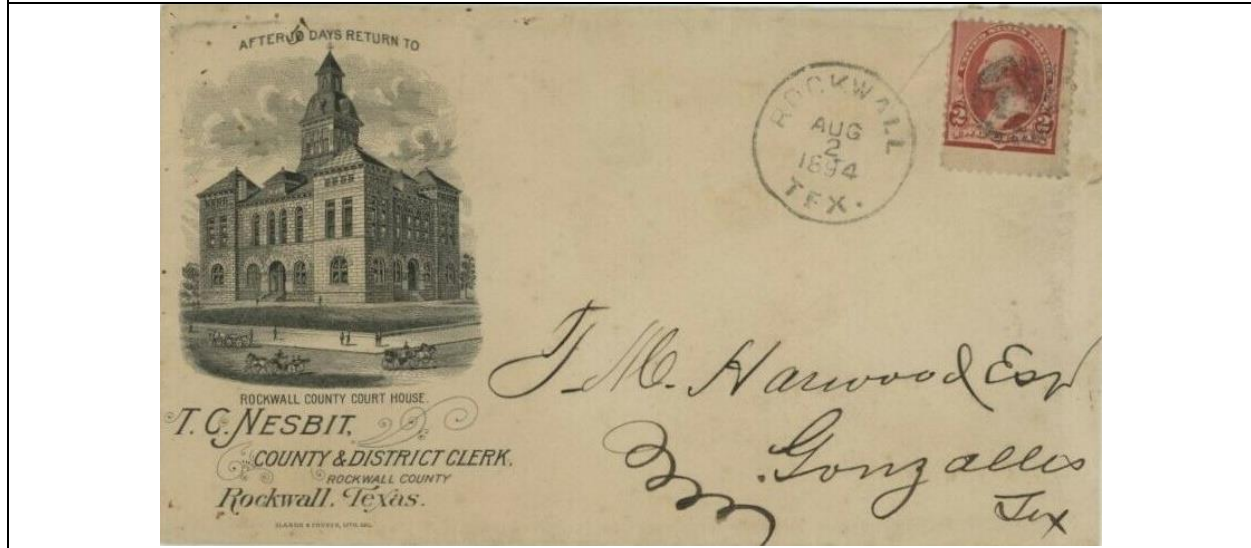 AFTER 10 DAYS RETURN TO
ROCKWALL COUNTY COURT HOUSE.
T. C. NESBIT,
COUNTY & DISTRICT CLERK,
ROCKWALL COUNTY
Rockwall, Texas.
ROCKWALL
AUG
2
1894
TEX.
2 2
T. M. Harwood Esq
Gonzalles
Tex